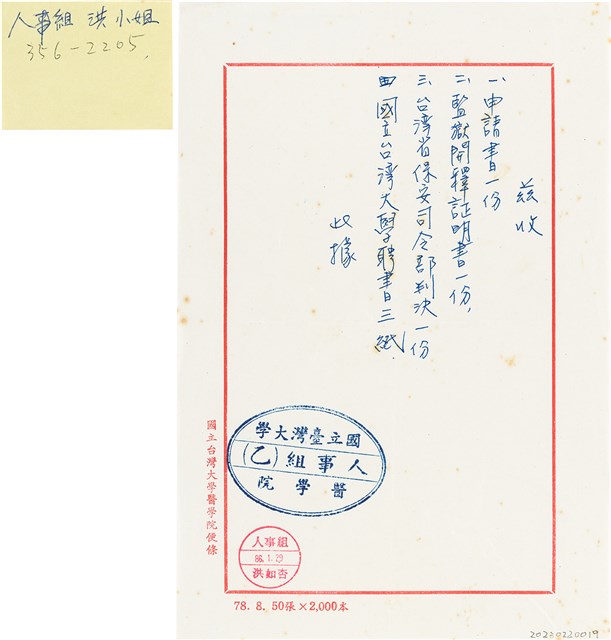 人事組 洪小姐
356-2205,
茲收
一、申請書一份
二、監獄開釋証明書一份,
三、台湾省保安司令部判決一份
四、國立台湾大學聘書三紙
此據
學大灣臺立國
(乙)組事人
院學醫
人事組
86.1.29
洪如杏
國立台灣大學醫學院便條
78. 8. 50張×2,000本
20220220019